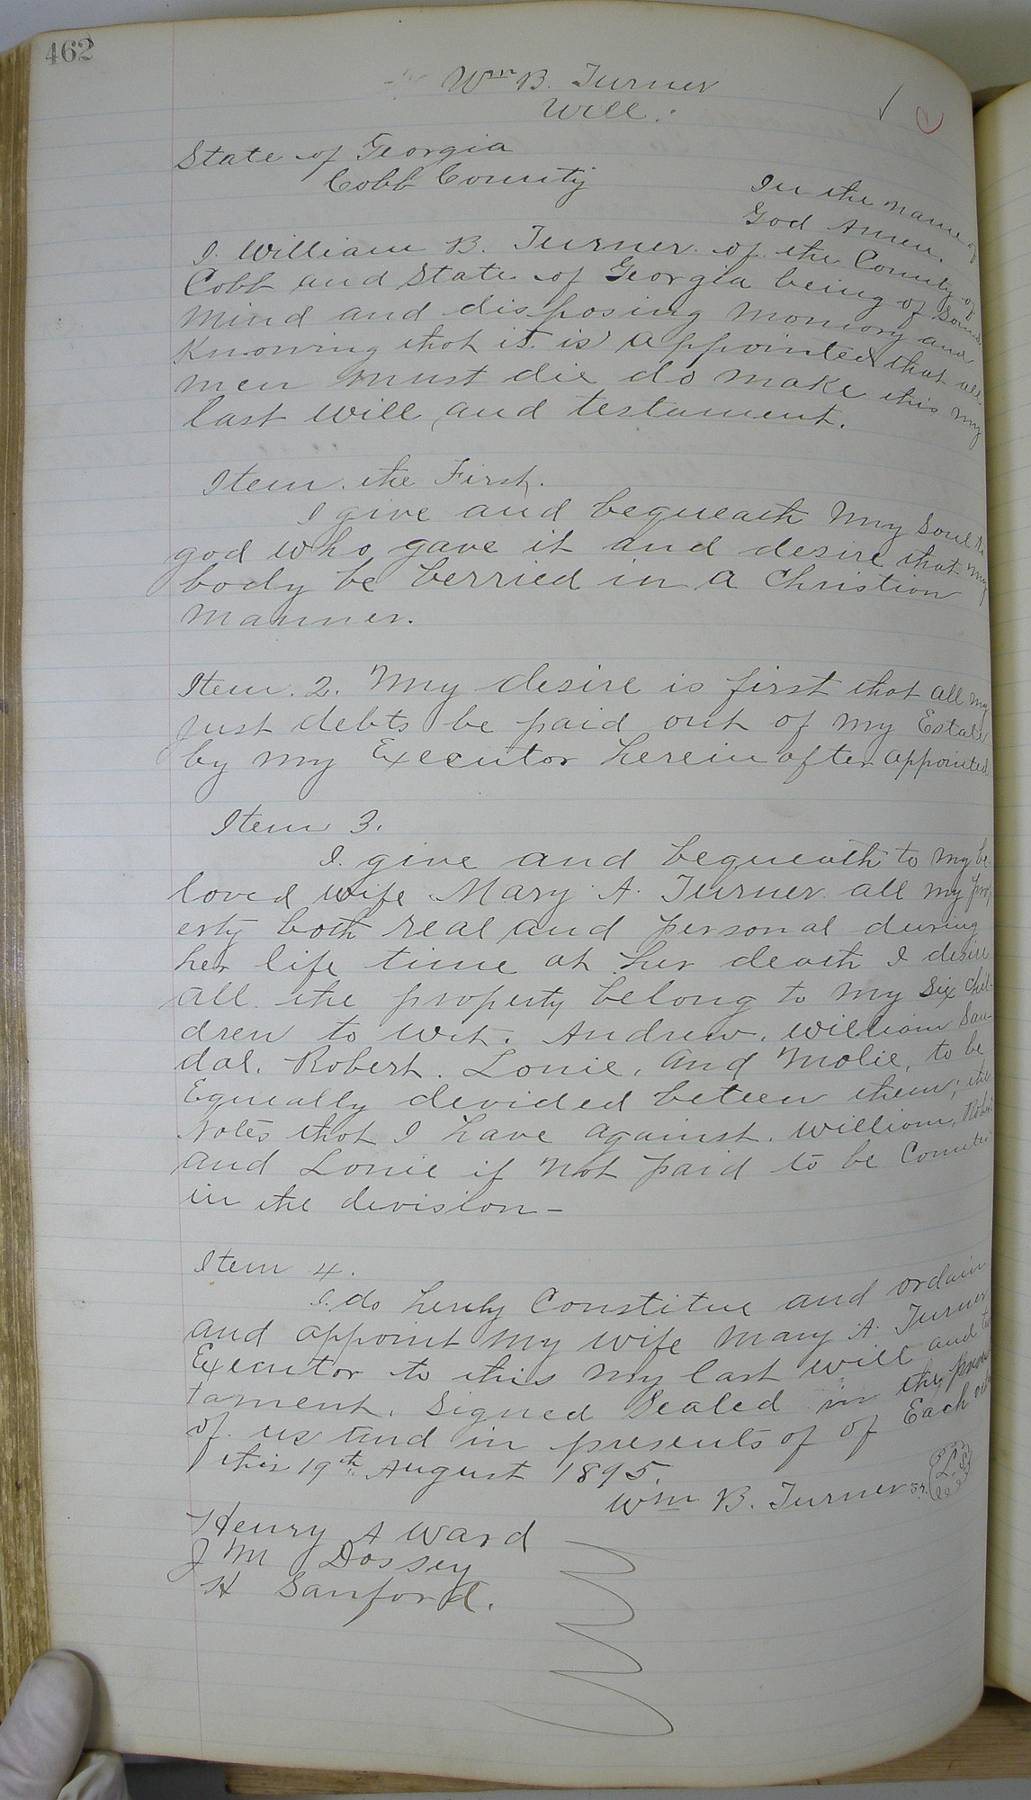 462
Wm B. Turner
Will.
State of Georgia
Cobb County
In the name of
God Amen.
I. William B. Turner of the County of
Cobb and State of Georgia being of Sound
mind and disposing momory and
Knowing that it is appointed that all
men must die do make this my
last will and testament.
Item the First.
I give and bequeath my Soul to
god who gave it and desire that my
body be berried in a Christion
manner.
Item. 2. My desire is first that all my
just debts be paid out of my Estate
by my Executor herein after appointed
Item 3.
I. give and bequeath to my be-
loved wife Mary A. Turner all my prop-
erty both real and personal during
her life time at her death I desire
all the property belong to my six chil-
dren to wit. Andrew. William San-
dal. Robert. Lonie. and Molie, to be
Equeally devided beteen them; the
Notes that I have against. William, Robert
and Lonie if not paid to be Counted
in the devision-
Item 4.
I. do herby Constitue and ordain
and appoint my wife Mary A. Turner
Executor to this my last will and tes
tament. Signed Sealed in the presen
of us and in presents of of Each other
this 19th August 1895.
Wm B. Turner Sr. L.S
Henry A Ward
J M Dossey
H Sanford.